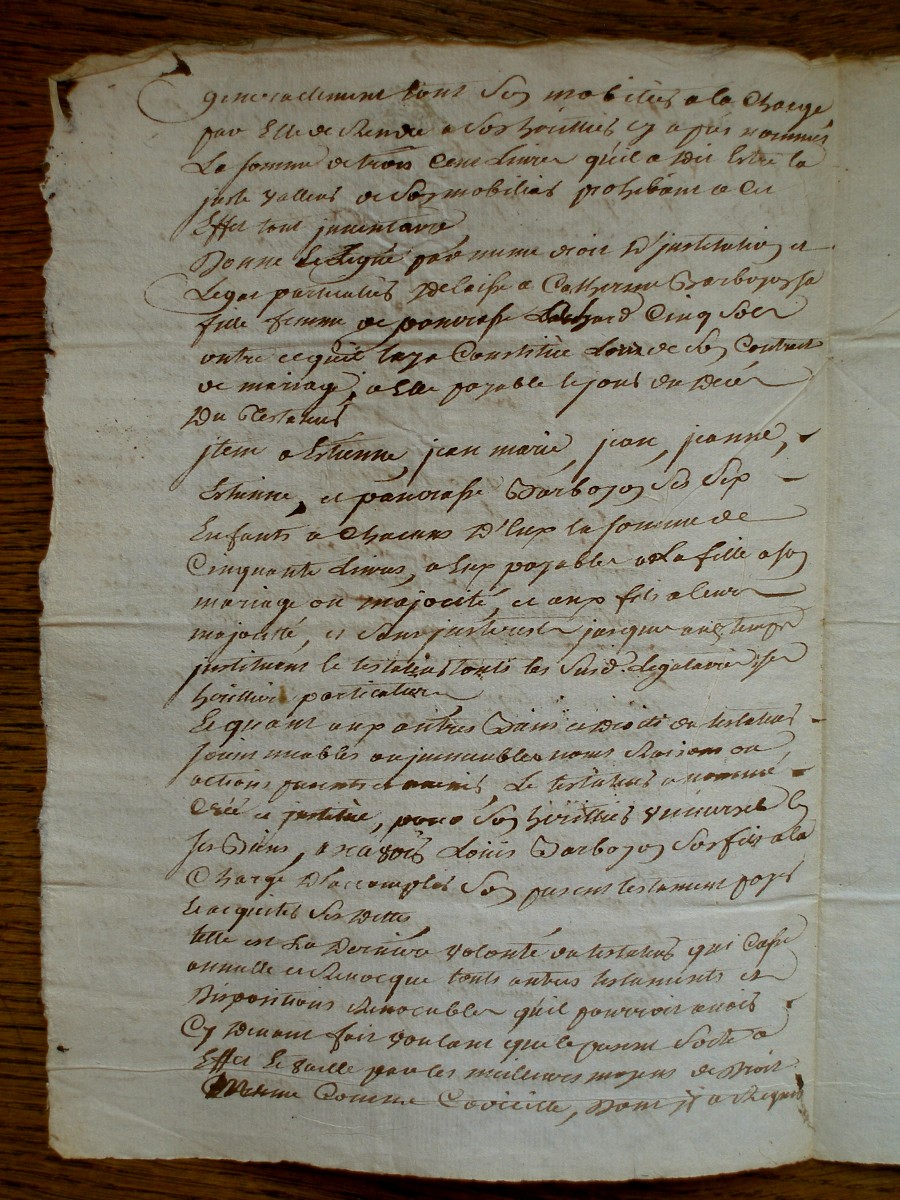 generallement tout Son mobilier a la Charge
par Elle de Rendre a Ses heritiers cy apres nommés
La somme de trois Cent Livres qu'il a Dit Estre la
juste valleur de Son mobilier prohibant a Cet
Effet tout jnventaire
Donne et Legue par meme droit D'jnstitution et
Legat particulier Delaisse a Catherine Darbozon sa
fille femme de pancrasse Cinq Sols
outre ce quil luy a Constitué Lors de Son Contract
de mariage, a Elle payable le jour du Decés
Du Testateur
jtem a Estienne, jean marie, jean, jeanne,
Estienne, et pancrasse Darbozon Ses Six
Enfants a Chacuns D'Eux la somme de
Cinquante Livres, a Eux payables a La fille a son
mariage ou majorité, et aux fils a leur
majorité, et Sans jnterests jusques au temps
jnstituant le testateur touts les Susd. Legataires Ses
heritiers particuliers
Et quant aux autres Biens et Droits du testateur
Soient meubles ou jmmeubles noms Raisons ou
actions presents et avenir, Le testateur a nommé
Créé et jnstitué, pour Son heritier universel
Ses Biens, a scavoir Louis Darbozon Son fils a la
Charge D'accomplir Son present testament payer
Et acquiter Ses Dettes
telle est La Derniere volonté du testateur qui Casse
annulle et Revocque touts autres testaments et
Dispositions Revocables qu'il pourroit avoir
Cy Devant fait voulant que le present Sorte a
Effet Et vaille par les meilleurs moyens de Droit
Meme Comme Codicille, Dont jl a Requis